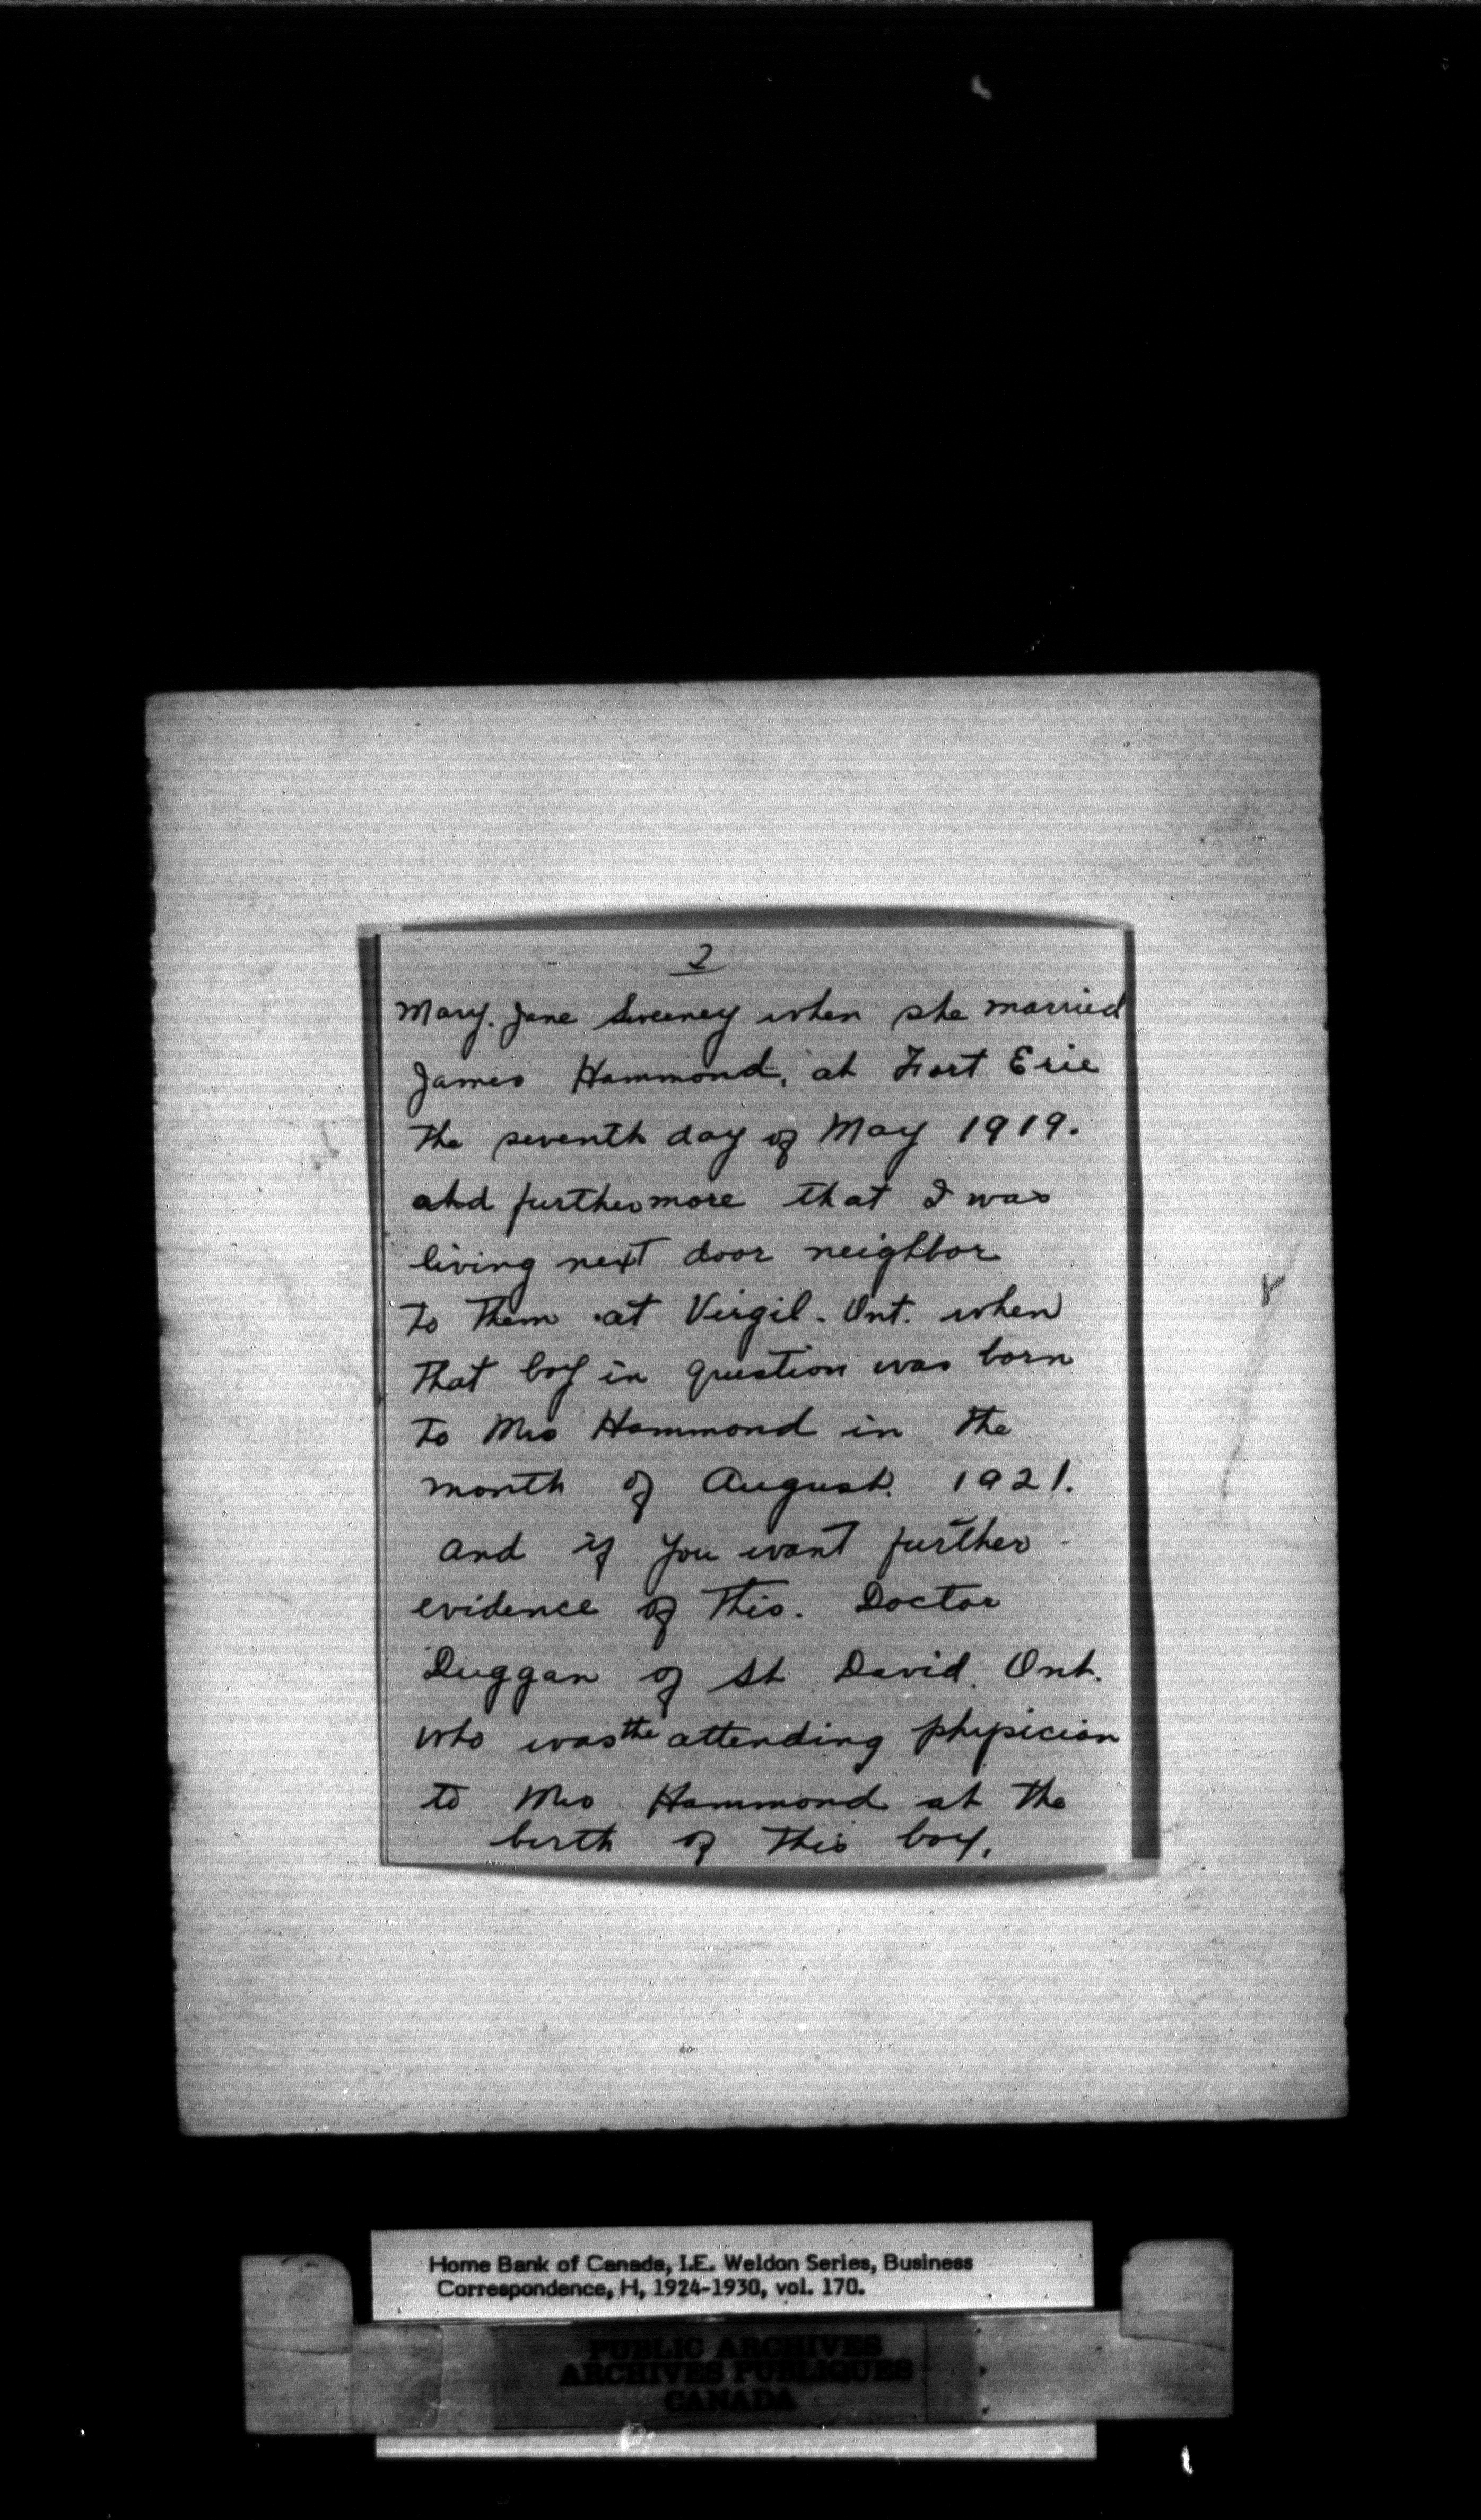 2
Mary. Jane Sweeney when she married
James Hammond, at Fort Erie
the seventh day of May 1919.
and furthermore that I was
living next door neighbor
to them at Virgil. Ont. when
that boy in question was born
to Mrs Hammond in the
month of August. 1921.
and if you want further
evidence of this. Doctor
Duggan of St David. Ont.
who was the attending physician
to Mrs Hammond at the
birth of this boy.
Home Bank of Canada, I.E. Weldon Series, Business
Correspondence, H, 1924-1930, vol. 170.
PUBLIC ARCHIVES
ARCHIVES PUBLIQUES
CANADA